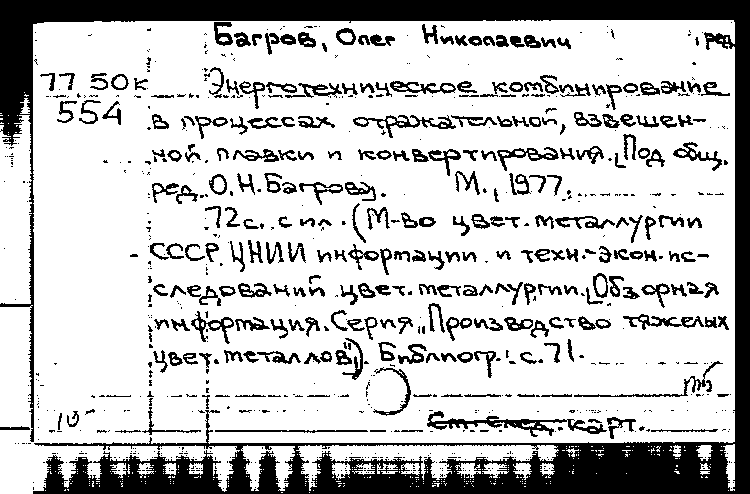 Багров, Олег Николаевич , ред.
77.50к Энерготехническое комбинирование
554 в процессах отражательной, взвешен-
ной плавки и конвертирования. [Под общ.
ред. О.Н. Багрова]. М., 1977.
72 с. с ил. (М-во цвет. металлургии
СССР. ЦНИИ информации и техн.-экон. ис-
следований цвет. металлургии. [Обзорная
информация. Серия „Производство тяжелых
цвет. металлов"]). Библиогр.: с. 71.
мб
10
См. след. карт.